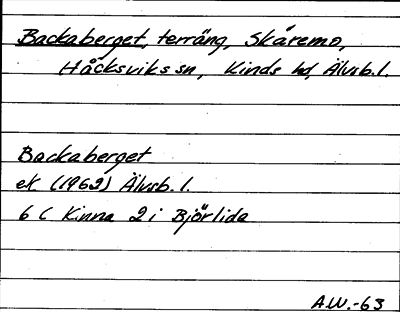 Backaberget, terräng, Skåremo,
Håcksviks sn, Kinds hd, Älvsb. l.
Backaberget
ek (1962) Älvsb. l.
6 C Kinna 2 i Björlida
A.W.-63